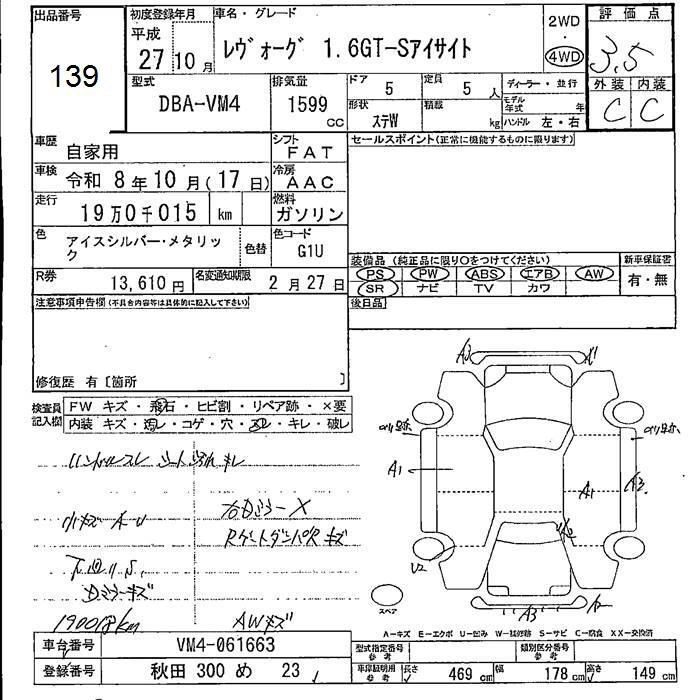 出品番号 初度登録年月 車名・グレード 2WD 評価点
139 平成 27 10月 レヴォーグ 1.6GT-Sアイサイト ・ 4WD 3.5
型式 排気量 ドア 5 定員 5人 ディーラー・並行 外装 内装
DBA-VM4 1599cc 形状 ステW 積載 kg モデル年式 年 C C
ハンドル 左・右
車歴 自家用 シフト FAT セールスポイント(正常に機能するものに限ります)
車検 令和 8年10月(17日) 冷房 AAC
走行 19万0千015 km 燃料 ガソリン
色 アイスシルバー・メタリック 色替 色コード G1U
装備品 (純正品に限り○をつけてください) 新車保証書
PS PW ABS エアB AW 有・無
SR ナビ TV カワ
R券 13,610円 名変通知期限 2月27日
注意事項申告欄(不具合内容等は具体的に記入して下さい) 後日品
修復歴 有〔箇所 〕
検査員記入欄 FW キズ・飛石・ヒビ割・リペア跡・×要
内装 キズ・汚レ・コゲ・穴・スレ・キレ・破レ
ハンドルスレ シート
小キズ A・U 右Dミラー×
RゲートダンパR キズ
下廻りS
Dミラーキズ
AWキズ
A1 A1 A3 U2 A3
スペア
A-キズ E-エクボ U-凹み W-補修跡 S-サビ C-腐食 XX-交換済
車台番号 VM4-061663 型式指定番号 参考 類別区分番号 参考
登録番号 秋田 300 め 23 車庫証明用 参考 長さ 469cm 幅 178cm 高さ 149cm